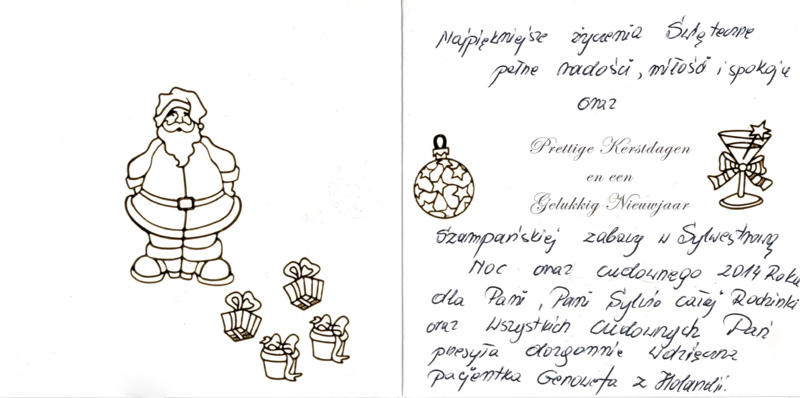 Najpiękniejsze życzenia Świąteczne
pełne radości, miłości i spokoju
oraz
Prettige Kerstdagen
en een
Gelukkig Nieuwjaar
Szampańskiej zabawy w Sylwestrową
Noc oraz cudownego 2014 Roku
dla Pani, Pani Sylwio całej Rodzinki
oraz wszystkich cudownych Pań
przesyła dozgonnie wdzięczna
pacjentka Genowefa z Holandii.